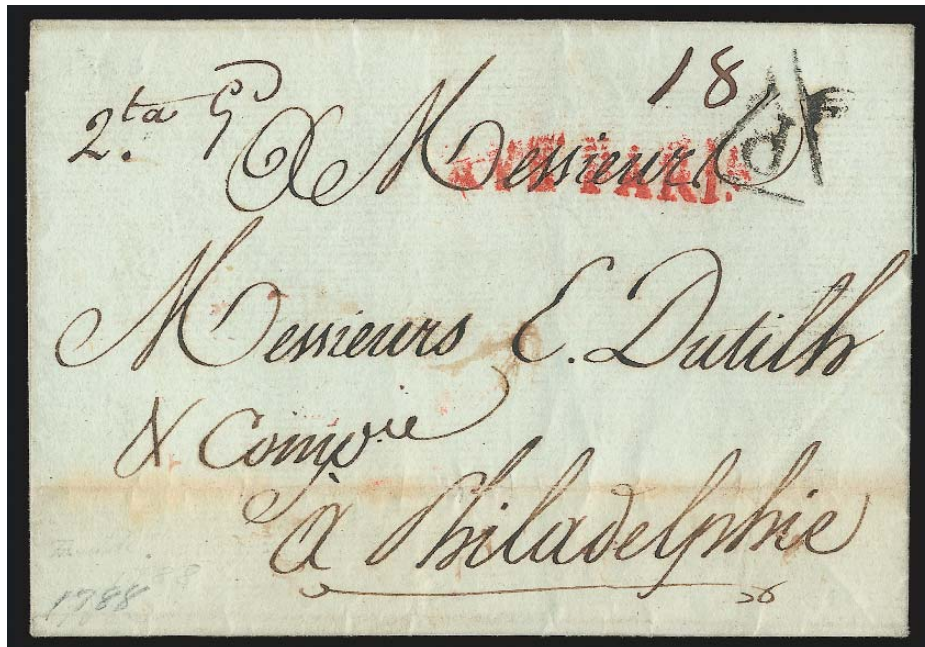 18
2.ta
A Messieurs
Messieurs E. Dutilh
& Comp.ie
à Philadelphie
1788